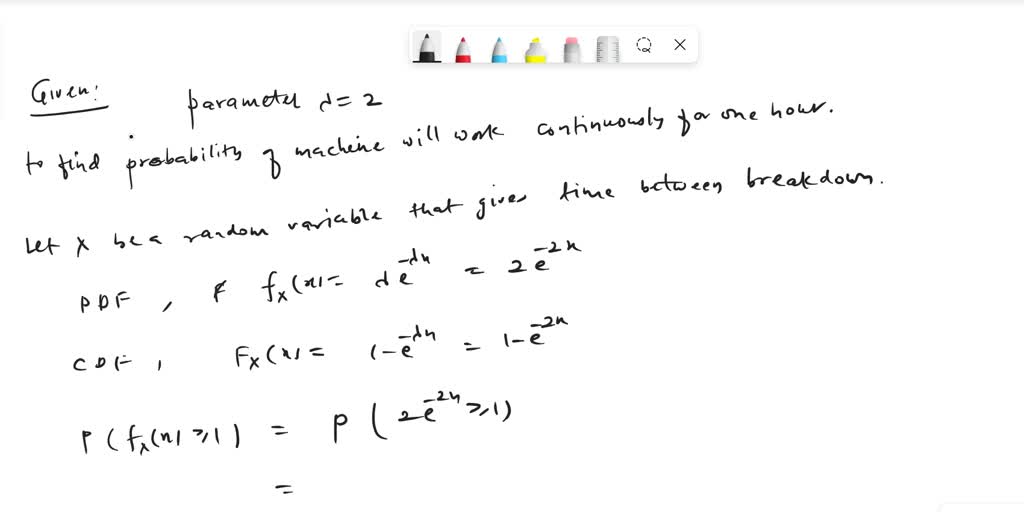 Given:
parameter λ = 2
to find probability of machine will work continuously for one hour.
Let X be a random variable that gives time between breakdown.
PDF, f_X(x) = λe^{-λx} = 2e^{-2x}
CDF, F_X(x) = 1-e^{-λx} = 1-e^{-2x}
P(f_X(x) ≥ 1) = P(2e^{-2x} ≥ 1)
=